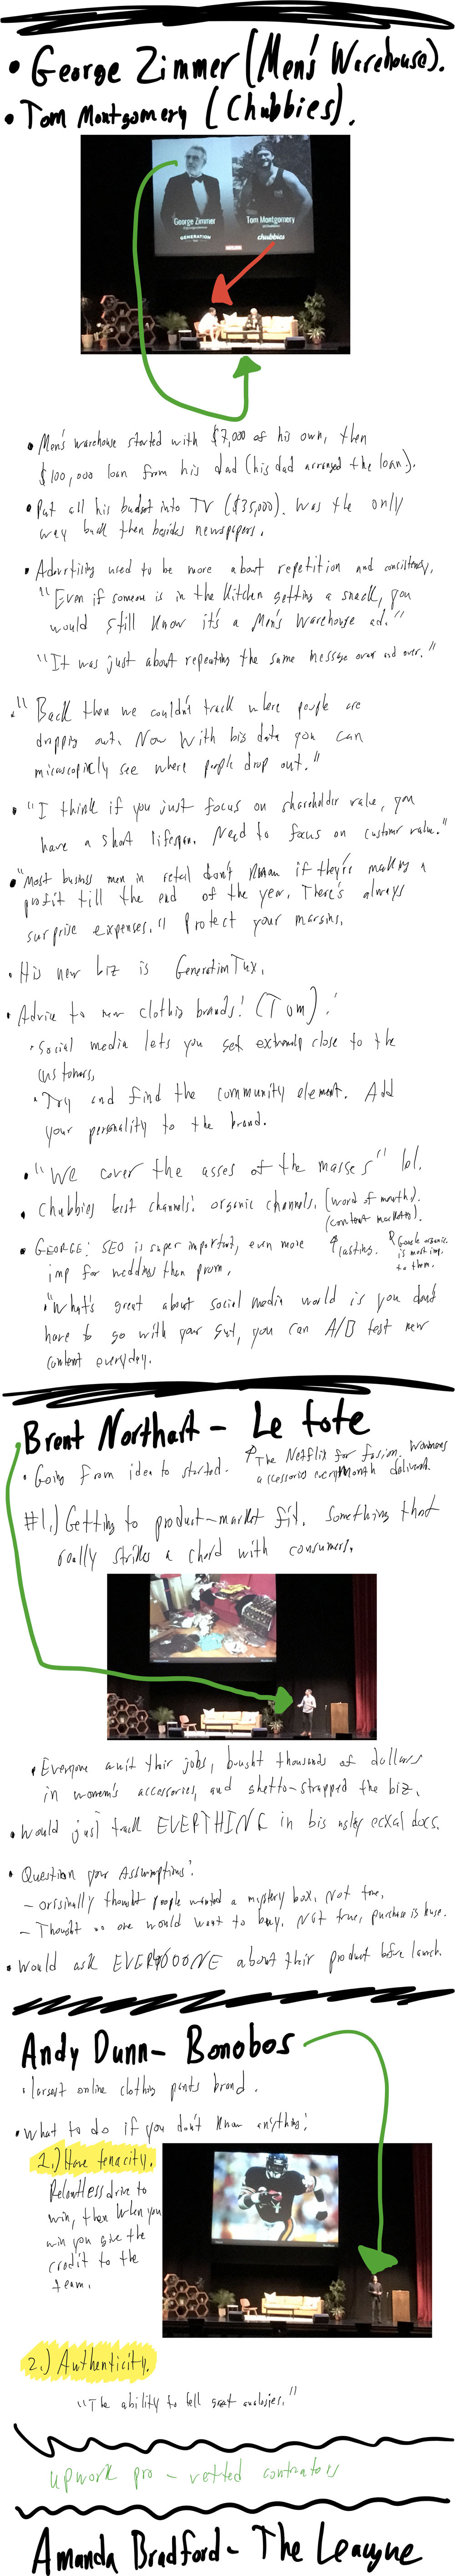 • George Zimmer (Men's Warehouse).
• Tom Montgomery (Chubbies).
George Zimmer
Tom Montgomery
GENERATION
chubbies
• Men's warehouse started with $7,000 of his own, then
$100,000 loan from his dad (his dad arranged the loan).
• Put all his budget into TV ($35,000). Was the only
way back then besides newspapers.
• Advertising used to be more about repetition and consistency.
"Even if someone is in the kitchen getting a snack, you
would still know it's a Men's Warehouse ad."
"It was just about repeating the same message over and over."
• "Back then we couldn't track where people are
dropping out. Now with big data you can
microscopicly see where people drop out."
• "I think if you just focus on shareholder value, you
have a short lifespan. Need to focus on customer value."
• "Most business men in retail don't know if they're making a
profit till the end of the year. There's always
surprise expenses." Protect your margins.
• His new biz is GenerationTux.
• Advice to new clothing brands! (Tom):
• Social media lets you get extremely close to the
customers,
• Try and find the community element. Add
your personality to the brand.
• "We cover the asses of the masses" lol.
• Chubbies best channels: organic channels. (word of mouth).
(content marketing).
• GEORGE: SEO is super important, even more
imp for weddings than prom,
↑ lasting.
↑ Google organic
is most imp.
to them.
• "What's great about social media world is you don't
have to go with your gut, you can A/B test new
content everyday.
Brent Northart - Le tote
• Going from idea to started.
↑ The Netflix for fasion. Womens
accessories every month delivered.
#1.) Getting to product-market fit. Something that
really strikes a chord with consumers.
• Everyone quit their jobs, bought thousands of dollars
in women's accessories, and ghetto-strapped the biz.
• Would just track EVERTHING in big ugly ecxal docs.
• Question your Assumptions:
- originally thought people wanted a mystery box. Not true.
- Thought no one would want to buy. Not true, purchase is huge.
• Would ask EVERYOOONE about their product before launch.
Andy Dunn- Bonobos
• largest online clothing pants brand.
• What to do if you don't know anything:
1.) Have tenacity.
Relentless drive to
win, then when you
win you give the
credit to the
team.
2.) Authenticity.
"The ability to tell great analogies."
upwork pro - vetted contrators
Amanda Bradford- The League